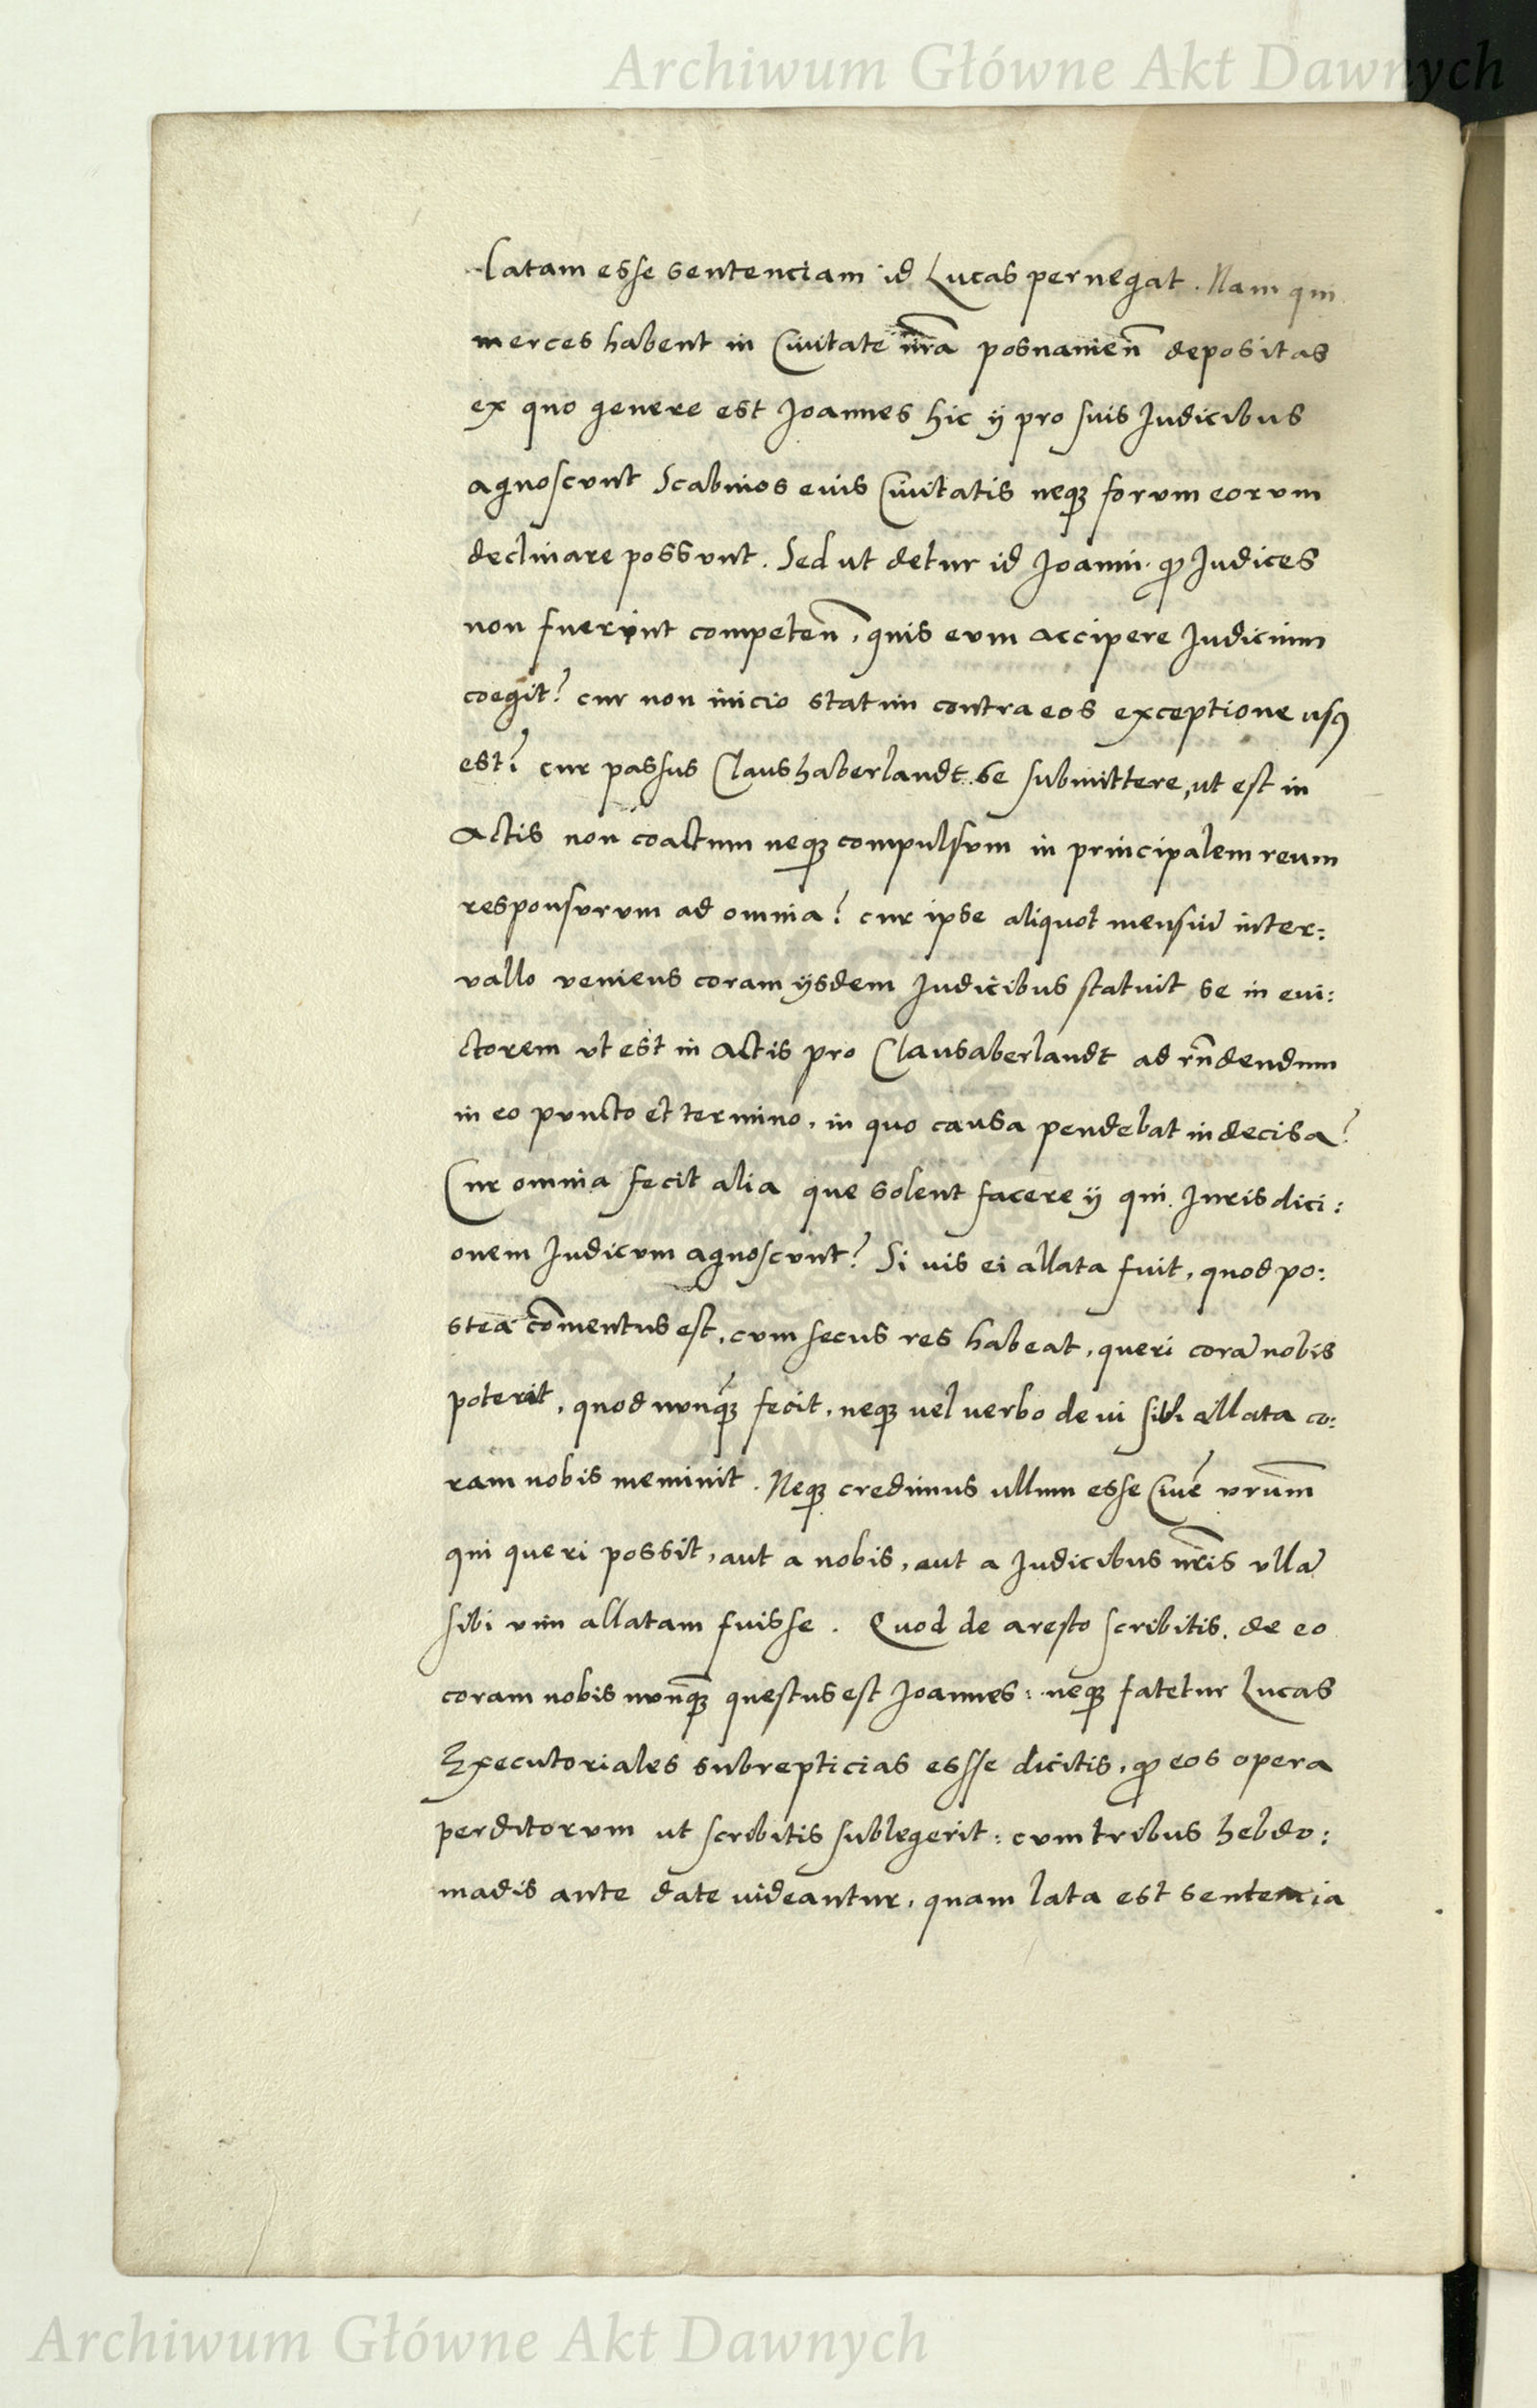 Archiwum Główne Akt Dawnych
latam esse sentenciam id Lucas pernegat. Nam qui
merces habent in Civitate nr̃a posnanien̄ depositas
ex quo genere est Joannes hic ij pro suis Judicibus
agnoscunt Scabinos eius Civitatis neqꝫ forum eorum
declinare possunt. Sed ut detur id Joanni. ꝙ Judices
non fuerint competen̄, quis eum accipere Judicium
coegit? cur non inicio statim contra eos exceptione usꝰ
est? cur passus Claushaberlandt se submittere, ut est in
Actis non coactum neqꝫ compulsum in principalem reum
responsurum ad omnia? cur ipse aliquot mensiū inter:
vallo veniens coram ijsdem Judicibus statuit se in evi:
ctorem ut est in Actis pro Clausaberlandt ad rñdendum
in eo puncto et termino, in quo causa pendebat indecisa?
Cur omnia fecit alia que solent facere ij qui Jurisdici:
onem Judicum agnoscunt? Si vis ei allata fuit, quod po:
stea com̄entus est, cum secus res habeat, queri corā nobis
poterit, quod nunqꝫ fecit, neqꝫ vel verbo de vi sibi allata co:
ram nobis meminit. Neqꝫ credimus ullum esse Civē vrūm
qui queri possit, aut a nobis, aut a Judicibus nr̃is ullā
sibi vim allatam fuisse. Quod de aresto scribitis, de eo
coram nobis nunqꝫ questus est Joannes: neqꝫ fatetur Lucas
Executoriales subrepticias essse dicitis, ꝙ eos opera
perditorum ut scribitis sublegerit: cum tribus hebdo:
madis ante date videantur, quam lata est sentencia
Archiwum Główne Akt Dawnych